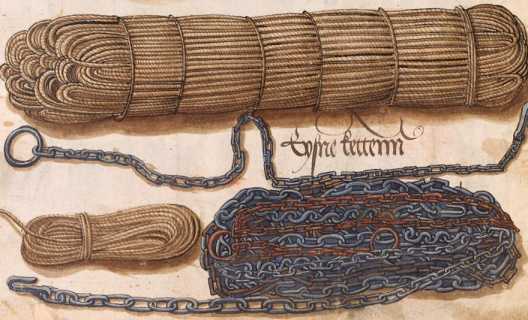 Eyſne kettenn